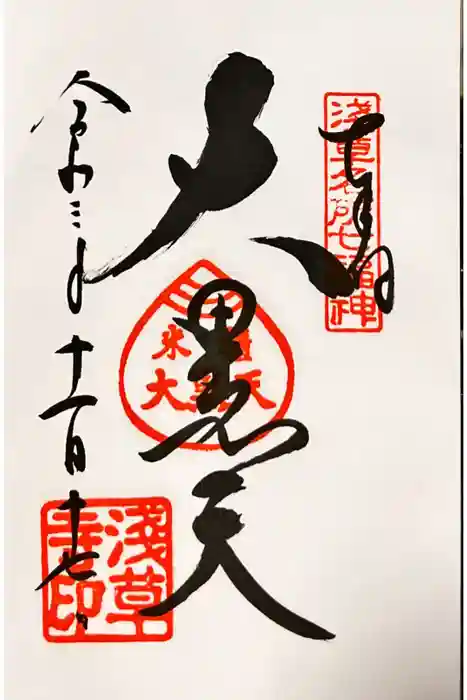 奉拝
淺草名所七福神
大黒天
米
大黒天
令和三年
十一月十七日
淺草
寺印